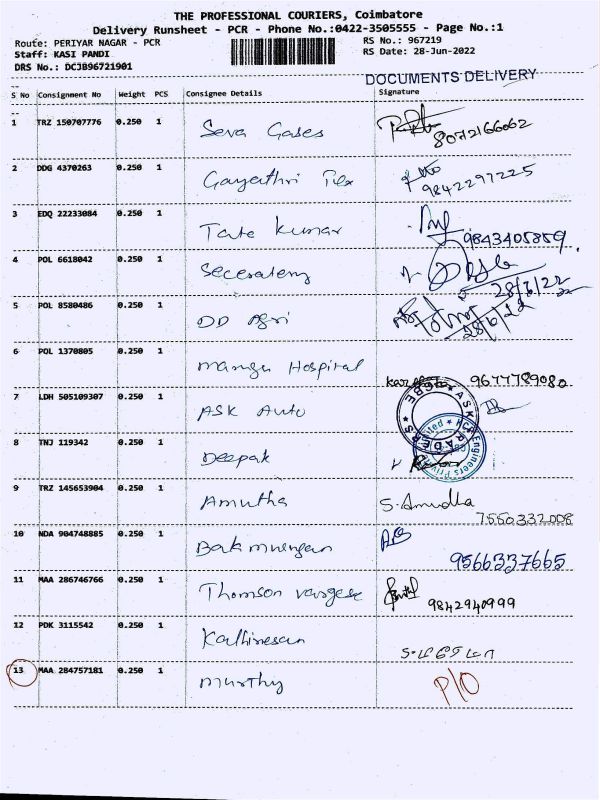 THE PROFESSIONAL COURIERS, Coimbatore
Delivery Runsheet - PCR - Phone No.:0422-3505555 - Page No.:1
Route: PERIYAR NAGAR - PCR RS No.: 967219
Staff: KASI PANDI RS Date: 28-Jun-2022
DRS No.: DCJB96721901
DOCUMENTS DELIVERY
S No Consignment No Weight PCS Consignee Details Signature
1 TRZ 150707776 0.250 1 Seva Gases 8072166062
2 DDG 4370263 0.250 1 Gayathri Tex 9842297225
3 EDQ 22233084 0.250 1 Tate Kumar 9843405859
4 POL 6618042 0.250 1 Seceratery 28/6/22
5 POL 8580486 0.250 1 DD Agri 28/6/22
6 POL 1370805 0.250 1 Mangu Hospital 9677789080
7 LDH 505109307 0.250 1 ASK Auto
ASK TRADERS * CBE
8 TNJ 119342 0.250 1 Deepak
Engineers Private
9 TRZ 145653904 0.250 1 Amutha S. Amudha
7550332008
10 NDA 904748885 0.250 1 Balamurugan
9566337665
11 MAA 286746766 0.250 1 Thomson vargese 9842940999
12 PDK 3115542 0.250 1 Kathiresan
13 MAA 284757181 0.250 1 Murthy P/O